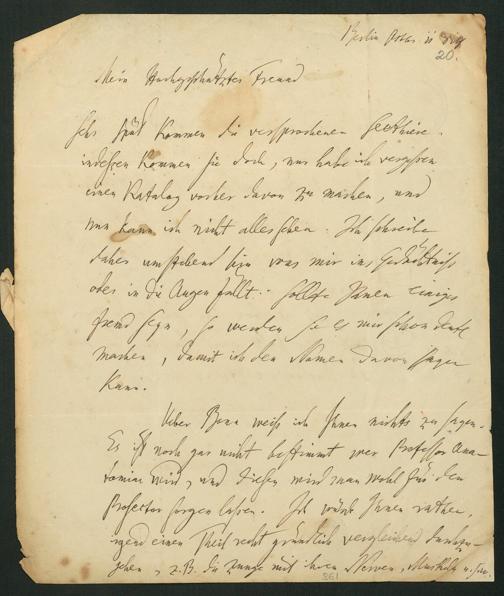 Berlin
20.
Mein Hochgeschätzter Freund
Sehr spät kommen die versprochenen
indessen kommen sie doch, nur habe ich vergessen
einen Katalog vorher davon zu machen, und
nun kann ich nicht alles sehen. Ich schreibe
daher umstehend hin was mir ins Gedächtniss
oder in die Augen fällt. Sollte Ihnen einiges
fremd seyn, so werden Sie es mir schon
machen, damit ich den Namen davon sagen
kann.
Ueber Bonn weiss ich Ihnen nichts zu sagen.
Es ist noch gar nicht bestimmt wer Professor Ana-
tomiae wird, und dieser wird man wohl für den
Prosector sorgen lassen. Ich würde Ihnen rathen,
irgend einen Theil recht gründlich vergleichend durchzu-
gehen, z.B. die Zunge mit ihren Nerven, Muskeln u.s.w.
861